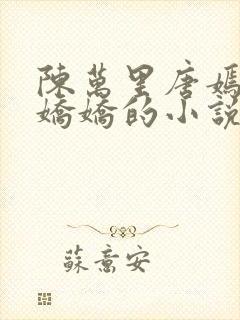 陳萬里唐嫣
嬌嬌的小說
蘇意安